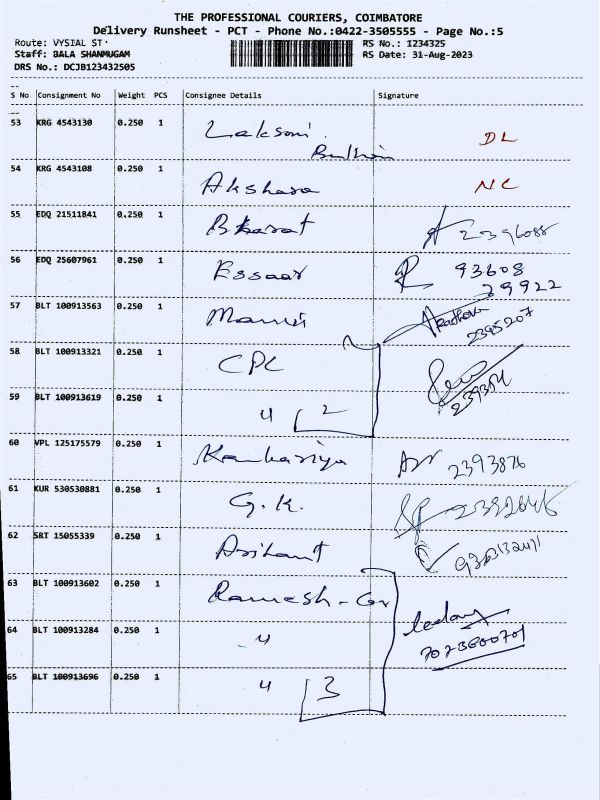 THE PROFESSIONAL COURIERS, COIMBATORE
Delivery Runsheet - PCT - Phone No.:0422-3505555 - Page No.:5
Route: VYSIAL ST RS No.: 1234325
Staff: BALA SHANMUGAM RS Date: 31-Aug-2023
DRS No.: DCJB123432505
S No Consignment No Weight PCS Consignee Details Signature
53 KRG 4543130 0.250 1 Laksmi DL
54 KRG 4543108 0.250 1 Akshara NC
55 EDQ 21511841 0.250 1 Bharat 2396088
56 EDQ 25607961 0.250 1 Essaar 93608
29922
57 BLT 100913563 0.250 1 2395207
58 BLT 100913321 0.250 1 CPC
59 BLT 100913619 0.250 1 " 2
60 VPL 125175579 0.250 1 Kankariya 2393876
61 KUR 530530881 0.250 1 G.K.
62 SRT 15055339 0.250 1 Arihant
63 BLT 100913602 0.250 1 Ramesh-Gr
64 BLT 100913284 0.250 1 "
65 BLT 100913696 0.250 1 " 3